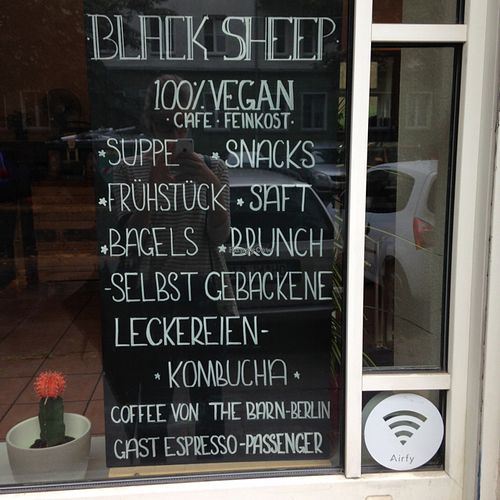 ·BLACK SHEEP·
100% VEGAN
·CAFE·FEINKOST·
*SUPPE *SNACKS
*FRÜHSTÜCK *SAFT
*BAGELS *BRUNCH
-SELBST GEBACKENE
LECKEREIEN-
*KOMBUCHA*
COFFEE VON THE BARN-BERLIN
GAST ESPRESSO-PASSENGER
Airfy